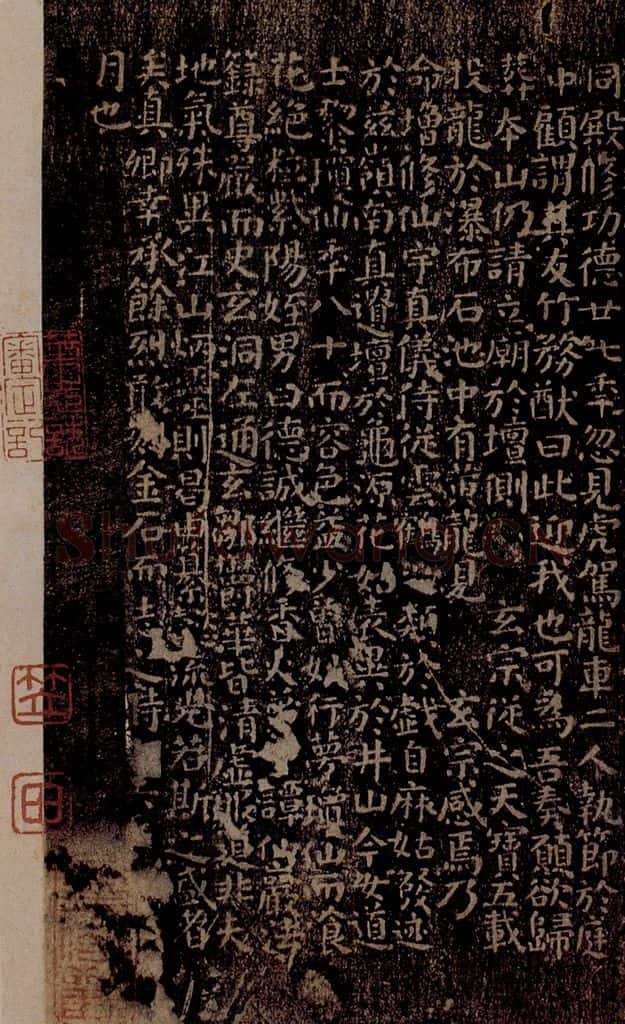 同殿修功德廿七年忽見虎駕龍車二人執節於庭
中顧謂其友竹務猷曰此迎我也可為吾奏願欲歸
葬本山仍請立廟於壇側玄宗從之天寶五載
投龍於瀑布石池中有黃龍見玄宗感焉乃
命增修仙宇真儀侍從雲鶴之類於戲自麻姑發迹
於茲嶺南真遺壇於龜源花姑表異於井山今女道
士黎瓊仙年八十而容色益少曾妙行夢瓊仙而食
花絕粒紫陽姪男曰德誠繼修香火譚仙巖法
籙尊嚴而史玄洞左通玄鄒鬱華皆清虛服道非夫
地氣殊異江山炳靈則曷由纂流光若斯之盛者
矣真卿幸承餘烈敢刻金石而志之時
月也